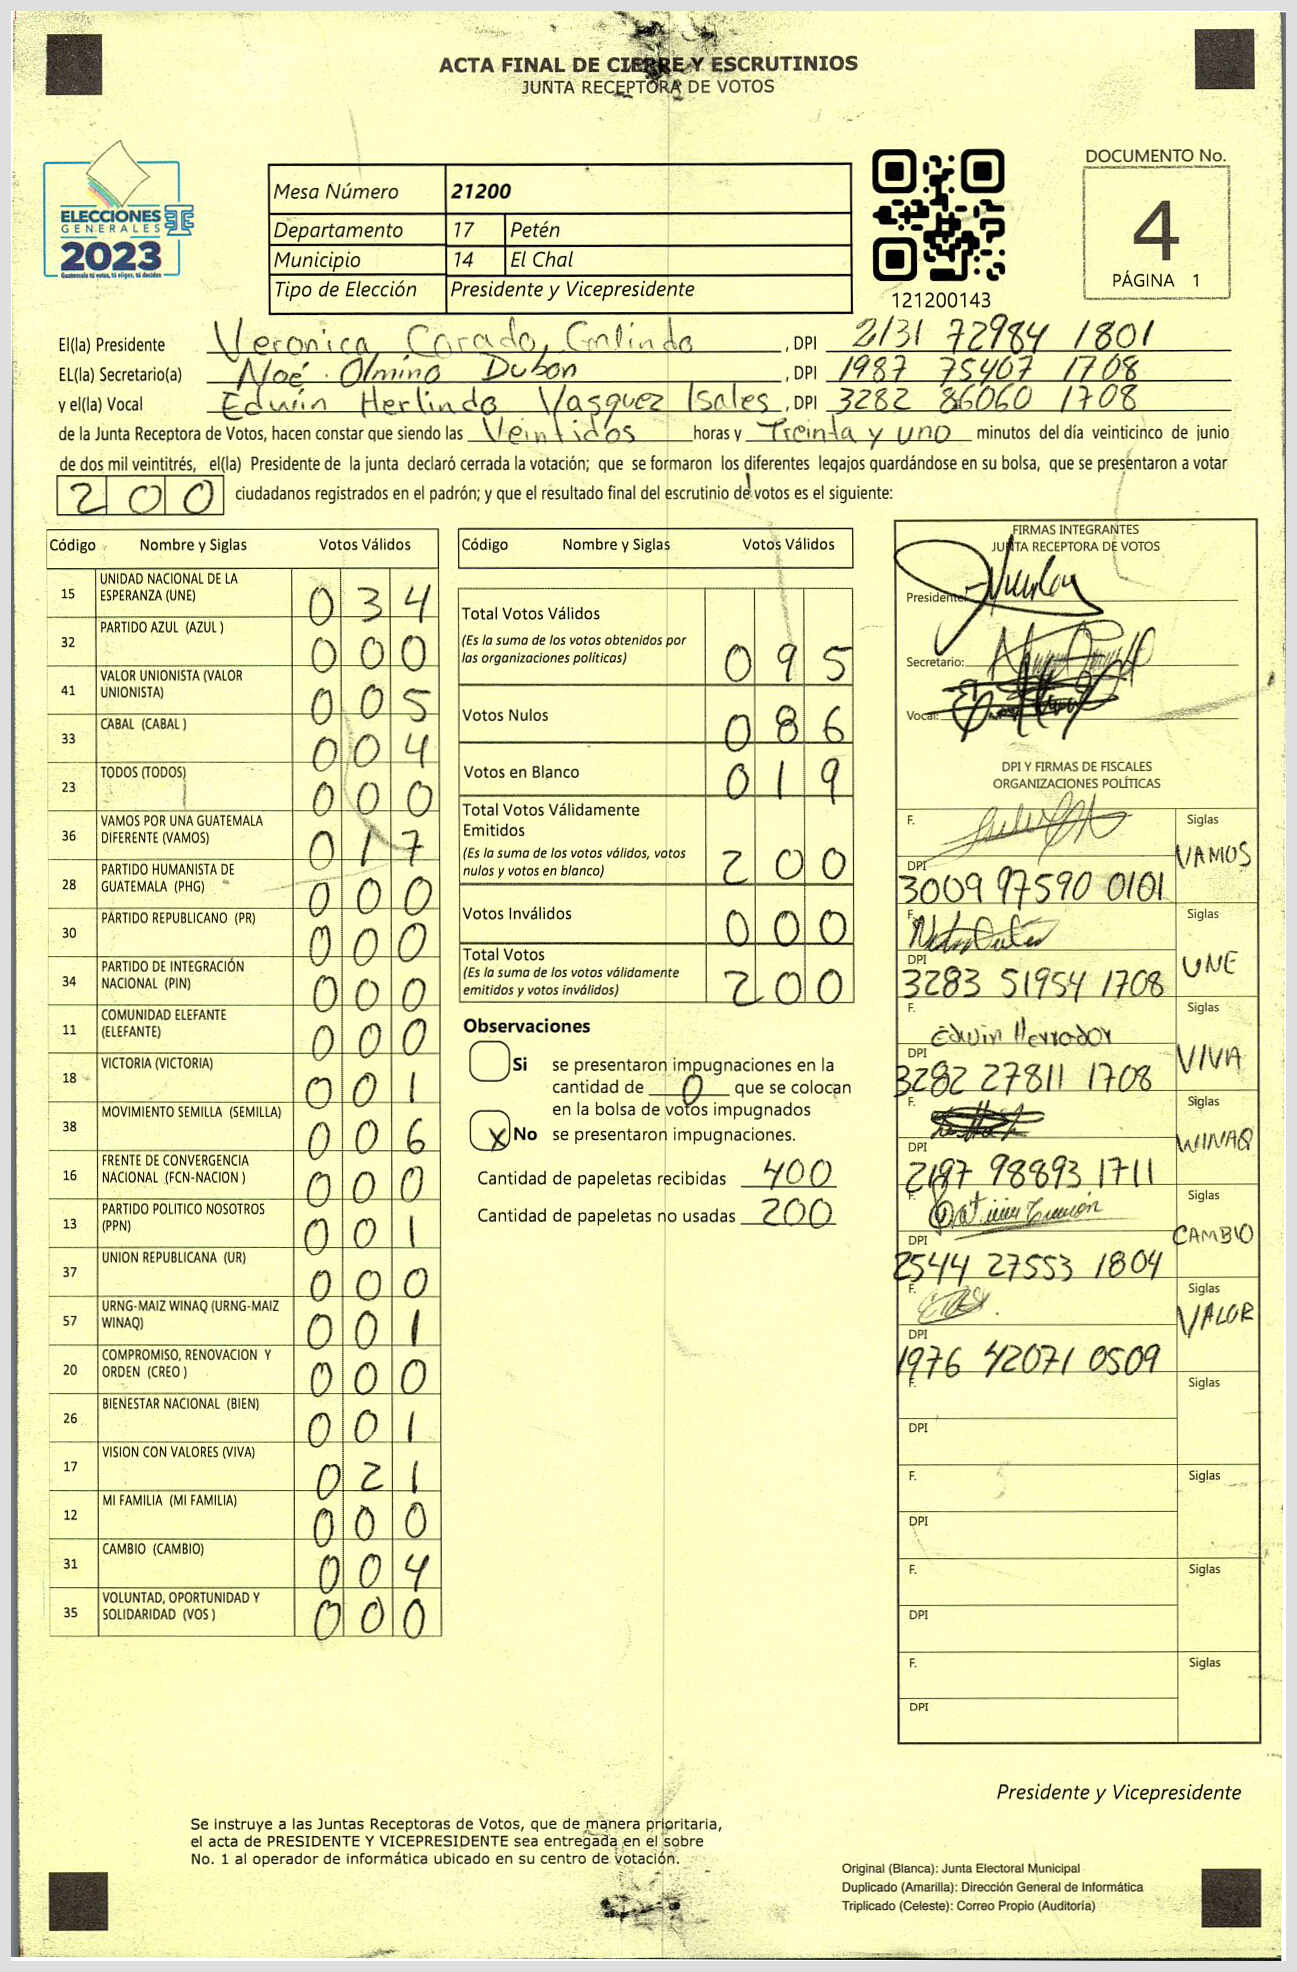 ACTA FINAL DE CIERRE Y ESCRUTINIOS
JUNTA RECEPTORA DE VOTOS
ELECCIONES
GENERALES
2023
Guatemala tú votas, tú eliges, tú decides
Mesa Número 21200
Departamento 17 Petén
Municipio 14 El Chal
Tipo de Elección Presidente y Vicepresidente
121200143
DOCUMENTO No.
4
PÁGINA 1
El(la) Presidente Veronica Corado Galindo, DPI 2131 72984 1801
EL(la) Secretario(a) Noé Olmino Dubon, DPI 1987 75407 1708
y el(la) Vocal Edwin Herlindo Vasquez Isales, DPI 3282 86060 1708
de la Junta Receptora de Votos, hacen constar que siendo las Veintidos horas y Treinta y uno minutos del día veinticinco de junio
de dos mil veintitrés, el(la) Presidente de la junta declaró cerrada la votación; que se formaron los diferentes legajos guardándose en su bolsa, que se presentaron a votar
200 ciudadanos registrados en el padrón; y que el resultado final del escrutinio de votos es el siguiente:
Código Nombre y Siglas Votos Válidos
15 UNIDAD NACIONAL DE LA ESPERANZA (UNE) 034
32 PARTIDO AZUL (AZUL ) 000
41 VALOR UNIONISTA (VALOR UNIONISTA) 005
33 CABAL (CABAL ) 004
23 TODOS (TODOS) 000
36 VAMOS POR UNA GUATEMALA DIFERENTE (VAMOS) 017
28 PARTIDO HUMANISTA DE GUATEMALA (PHG) 000
30 PARTIDO REPUBLICANO (PR) 000
34 PARTIDO DE INTEGRACIÓN NACIONAL (PIN) 000
11 COMUNIDAD ELEFANTE (ELEFANTE) 000
18 VICTORIA (VICTORIA) 001
38 MOVIMIENTO SEMILLA (SEMILLA) 006
16 FRENTE DE CONVERGENCIA NACIONAL (FCN-NACION ) 000
13 PARTIDO POLITICO NOSOTROS (PPN) 001
37 UNION REPUBLICANA (UR) 000
57 URNG-MAIZ WINAQ (URNG-MAIZ WINAQ) 001
20 COMPROMISO, RENOVACION Y ORDEN (CREO ) 000
26 BIENESTAR NACIONAL (BIEN) 001
17 VISION CON VALORES (VIVA) 021
12 MI FAMILIA (MI FAMILIA) 000
31 CAMBIO (CAMBIO) 004
35 VOLUNTAD, OPORTUNIDAD Y SOLIDARIDAD (VOS ) 000
Código Nombre y Siglas Votos Válidos
Total Votos Válidos 095
(Es la suma de los votos obtenidos por las organizaciones políticas)
Votos Nulos 086
Votos en Blanco 019
Total Votos Válidamente Emitidos 200
(Es la suma de los votos válidos, votos nulos y votos en blanco)
Votos Inválidos 000
Total Votos 200
(Es la suma de los votos válidamente emitidos y votos inválidos)
Observaciones
Si se presentaron impugnaciones en la
cantidad de 0 que se colocan
en la bolsa de votos impugnados
X No se presentaron impugnaciones.
Cantidad de papeletas recibidas 400
Cantidad de papeletas no usadas 200
FIRMAS INTEGRANTES
JUNTA RECEPTORA DE VOTOS
Presidente:
Secretario:
Vocal:
DPI Y FIRMAS DE FISCALES
ORGANIZACIONES POLÍTICAS
F. Siglas VAMOS
DPI 3009 97590 0101
F. Siglas UNE
DPI 3283 51954 1708
F. Edwin Herrador Siglas VIVA
DPI 3282 27811 1708
F. Siglas WINAQ
DPI 2197 98893 1711
F. Siglas CAMBIO
DPI 2544 27553 1804
F. Siglas VALOR
DPI 1976 42071 0509
F. Siglas
DPI
F. Siglas
DPI
F. Siglas
DPI
F. Siglas
DPI
Presidente y Vicepresidente
Se instruye a las Juntas Receptoras de Votos, que de manera prioritaria,
el acta de PRESIDENTE Y VICEPRESIDENTE sea entregada en el sobre
No. 1 al operador de informática ubicado en su centro de votación.
Original (Blanca): Junta Electoral Municipal
Duplicado (Amarilla): Dirección General de Informática
Triplicado (Celeste): Correo Propio (Auditoría)